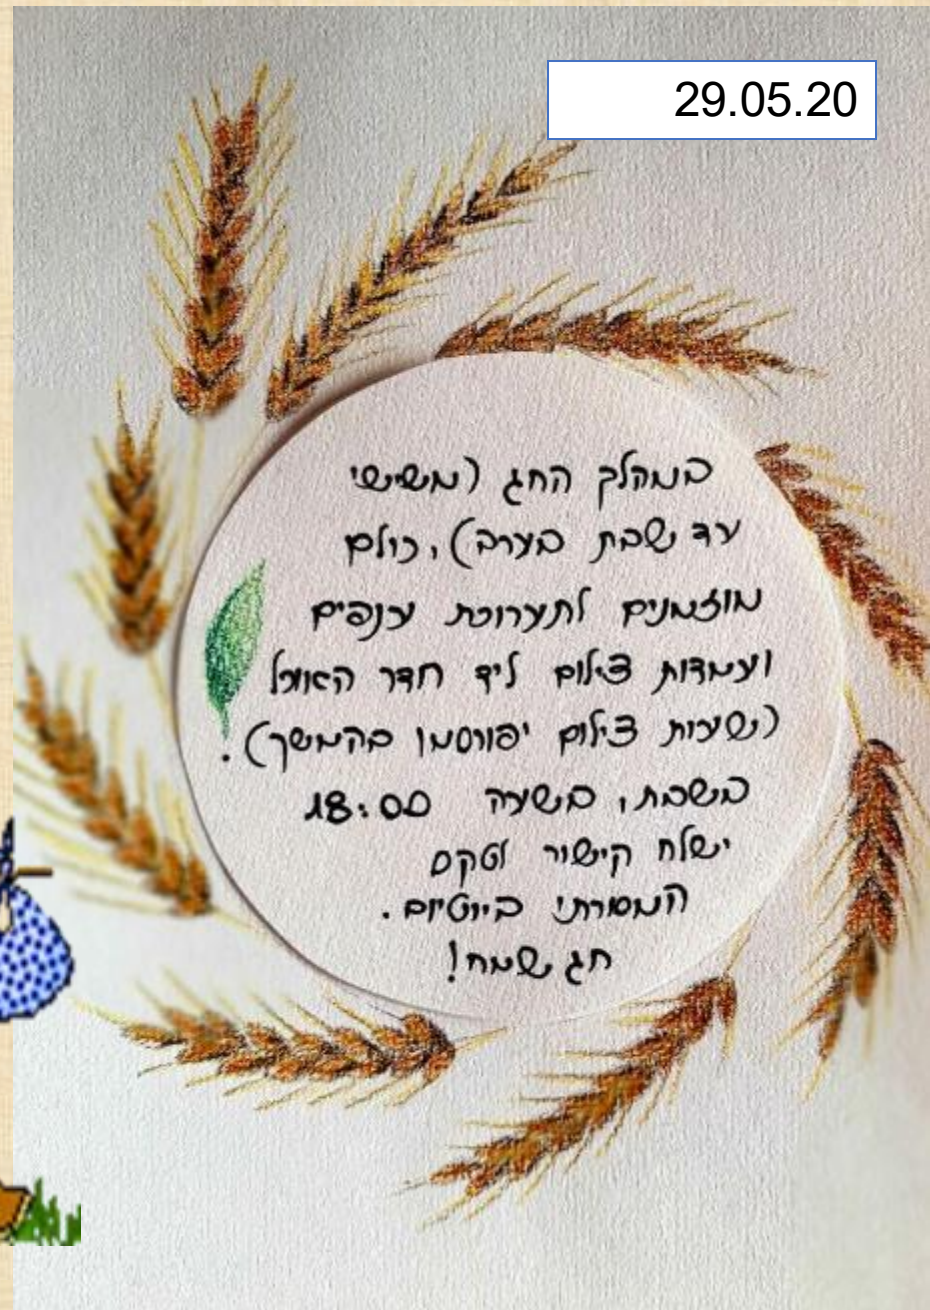 29.05.20
במהלך החג (משישי
עד שבת בערב), כולם
מוזמנים לתערוכת ענפים
ועמדות צילום ליד חדר האוכל
(שעות צילום יפורסמו בהמשך).
בשבת, בשעה 18:00
ישלח קישור לטקס
המסורתי ביוטיוב.
חג שמח!